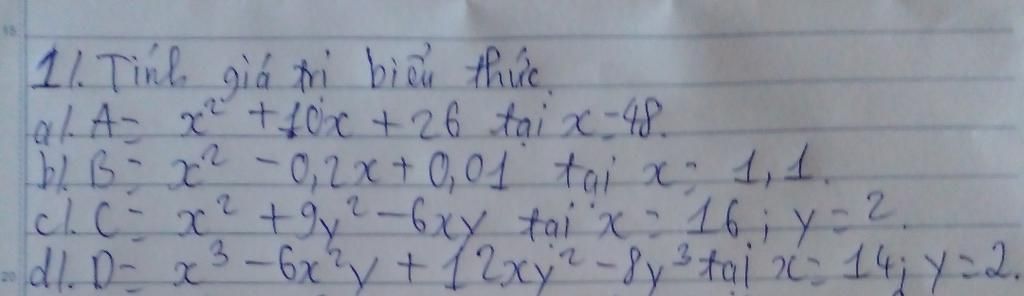 1/. Tính giá trị biểu thức.
a/. A = x² + 10x + 26 tại x = 48.
b/. B = x² - 0,2x + 0,01 tại x = 1,1.
c/. C = x² + 9y² - 6xy tại x = 16; y = 2.
d/. D = x³ - 6x²y + 12xy² - 8y³ tại x = 14; y = 2.